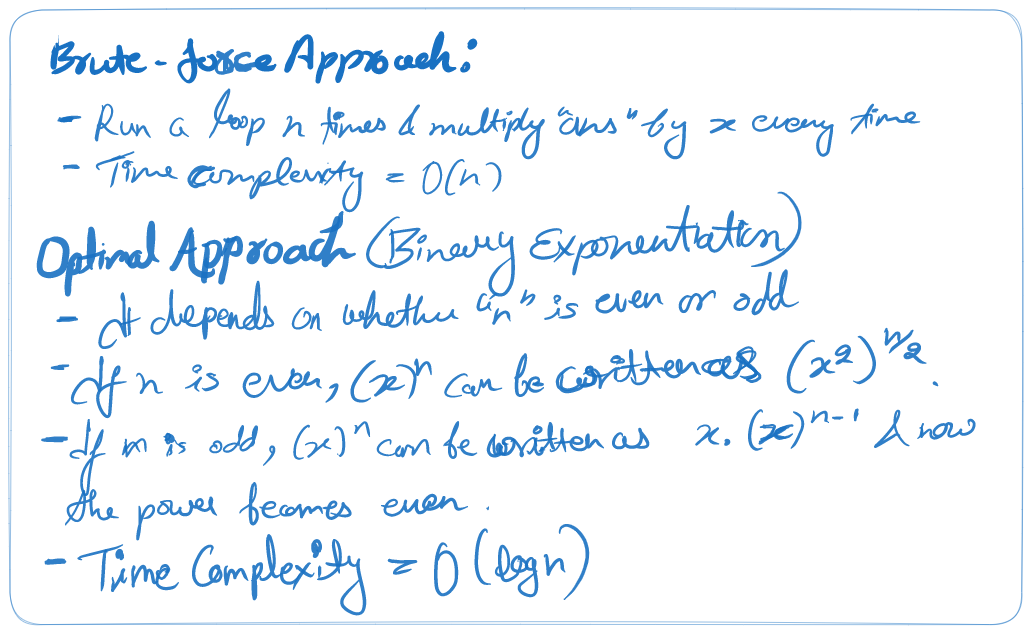 Brute-force Approach:
- Run a loop n times & multiply "ans" by x every time
- Time complexity = O(n)
Optimal Approach (Binary Exponentiation)
- It depends on whether "n" is even or odd
- If n is even, (x)^n can be written as (x^2)^{n/2}.
- If n is odd, (x)^n can be written as x.(x)^{n-1} & now
the power becomes even.
- Time Complexity = O(logn)